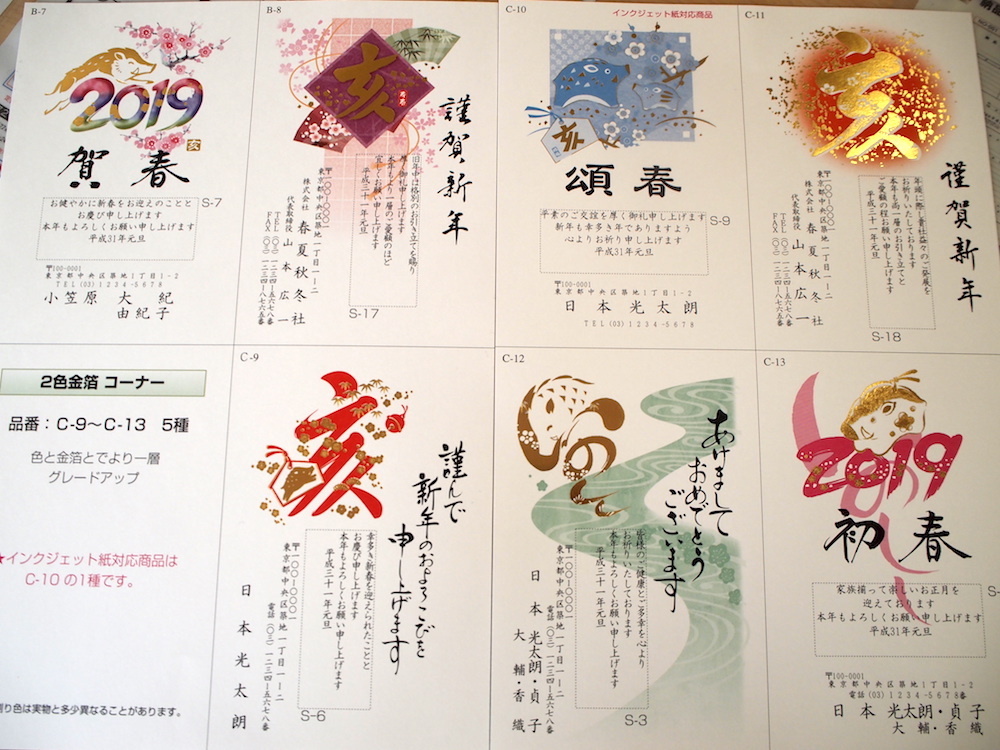 B-7
2019
亥
賀春
お健やかに新春をお迎えのことと
お慶び申し上げます
本年もよろしくお願い申し上げます
平成31年元旦
S-7
〒100-0001
東京都中央区築地1丁目1-2
TEL(03)1234-5678
小笠原 大 紀
由紀子
B-8
亥
謹賀新年
旧年中は格別のお引き立てを賜り
厚く御礼申し上げます
本年もより一層のご愛顧のほど
宜しくお願い申し上げます
平成三十一年元旦
S-17
〒一〇〇-〇〇〇一
東京都中央区築地一丁目一ー二
株式会社 春夏秋冬社
代表取締役 山本広一
TEL(〇三)一二三四-五六七八番
FAX(〇三)一二三四-八七六五番
C-10
インクジェット紙対応商品
亥
頌春
平素のご交誼を厚く御礼申し上げます
新年も幸多き年でありますよう
心よりお祈り申し上げます
平成31年元旦
S-9
〒100-0001
東京都中央区築地1丁目1-2
日本光太朗
TEL(03)1234-5678
C-11
亥
謹賀新年
年頭に際し貴社益々のご発展を
お祈りいたしております
本年も尚一層のお引き立てと
ご愛顧の程お願い申し上げます
平成三十一年元旦
S-18
〒一〇〇-〇〇〇一
東京都中央区築地一丁目一ー二
株式会社 春夏秋冬社
代表取締役 山本広一
TEL(〇三)一二三四-五六七八番
FAX(〇三)一二三四-八七六五番
2色金箔 コーナー
品番：C-9〜C-13 5種
色と金箔とでより一層
グレードアップ
★インクジェット紙対応商品は
C-10 の1種です。
刷り色は実物と多少異なることがあります。
C-9
亥
謹んで
新年のおよろこびを
申し上げます
幸多き新春を迎えられたことと
お慶び申し上げます
本年もよろしくお願い申し上げます
平成三十一年元旦
S-6
〒一〇〇-〇〇〇一
東京都中央区築地一丁目一ー二
電話(〇三)一二三四-五六七八番
日本光太朗
C-12
いのしし
あけまして
おめでとう
ございます
皆様のご健康とご多幸を心より
お祈りいたしております
本年もよろしくお願い申し上げます
平成三十一年元旦
S-3
〒一〇〇-〇〇〇一
東京都中央区築地一丁目一ー二
電話(〇三)一二三四-五六七八番
日本 光太朗・貞子
大輔・香織
C-13
2019
初春
家族揃って楽しいお正月を
迎えております
本年もよろしくお願い申し上げます
平成31年元旦
S-
〒100-0001
東京都中央区築地1丁目1-2
電話(03)1234-5678番
日本 光太朗・貞子
大輔・香織